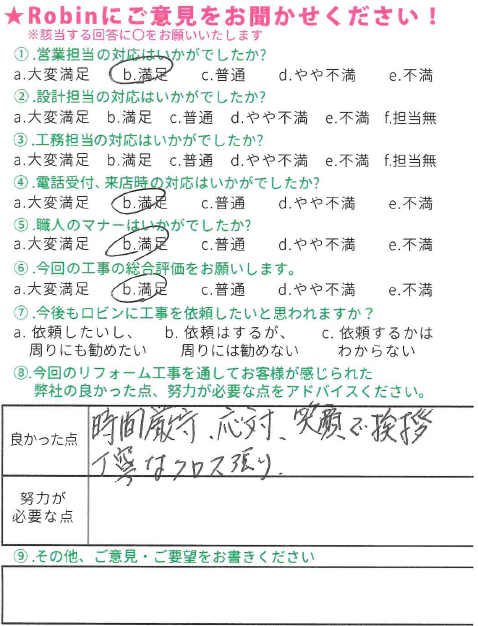 ★Robinにご意見をお聞かせください！
※該当する回答に〇をお願いいたします
①.営業担当の対応はいかがでしたか?
a.大変満足 b.満足 c.普通 d.やや不満 e.不満
②.設計担当の対応はいかがでしたか?
a.大変満足 b.満足 c.普通 d.やや不満 e.不満 f.担当無
③.工務担当の対応はいかがでしたか?
a.大変満足 b.満足 c.普通 d.やや不満 e.不満 f.担当無
④.電話受付、来店時の対応はいかがでしたか?
a.大変満足 b.満足 c.普通 d.やや不満 e.不満
⑤.職人のマナーはいかがでしたか?
a.大変満足 b.満足 c.普通 d.やや不満 e.不満
⑥.今回の工事の総合評価をお願いします。
a.大変満足 b.満足 c.普通 d.やや不満 e.不満
⑦.今後もロビンに工事を依頼したいと思われますか？
a. 依頼したいし、 b. 依頼はするが、 c. 依頼するかは
周りにも勧めたい 周りには勧めない わからない
⑧.今回のリフォーム工事を通してお客様が感じられた
弊社の良かった点、努力が必要な点をアドバイスください。
良かった点
時間厳守、応対、笑顔で挨拶
丁寧なクロス張り.
努力が
必要な点
⑨.その他、ご意見・ご要望をお書きください